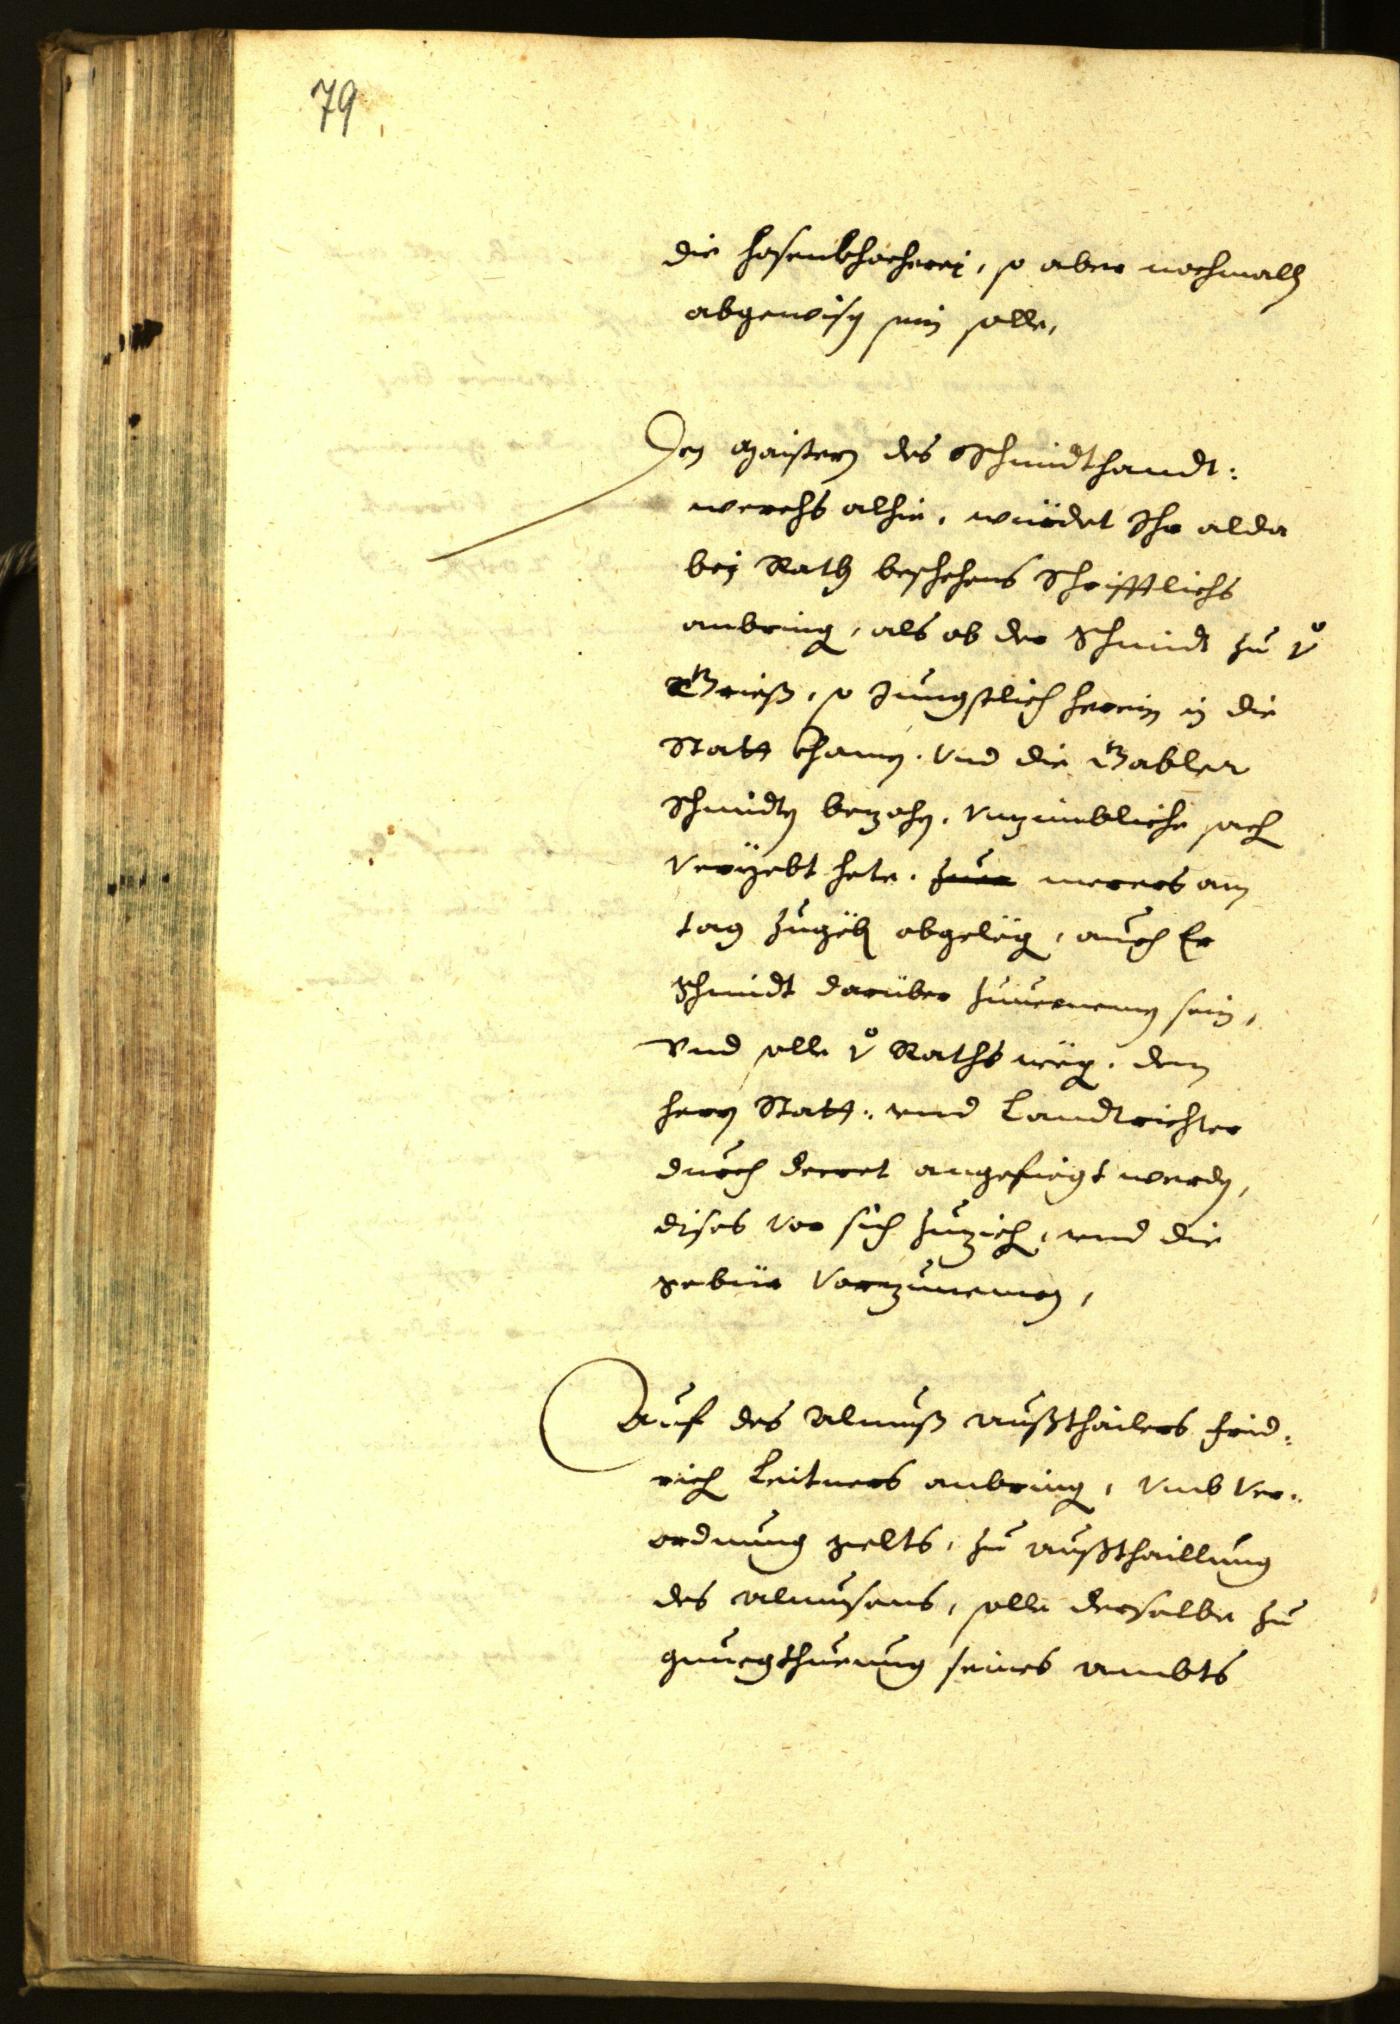 79
die hosenkhocherej, so aber nochmalß
abgewisen sein solle,
Den Maistern des Schmidthandt:
werchs alhie, würdet Ihr alda
bej Rath beschehens Schrifftlichs
anbringen, als ob der Schmidt zu v
Grieß, so Jungstlich herein in die
Statt khamen. Vnd die Gabler
Schmidten bezohen, vnzimbliche sachen
veryebt hete. merers am
tag zugeben abgelegen, auch Er
Schmidt darüber zuuernemen sein,
Vnd solle v Raths wegen, dem
herrn Statt: vnd Landtrichter
durch decret angefiegt werden,
dises vor sich zuziehen, vnd die
gebür vorzunemen,
Auf des Almuß außthailers Frid:
rich Leitners anbringen, vmb ver:
ordnung gelts, zu außthaillung
des almusens, solle derselbe zu
gnuegthuenung seines ambts